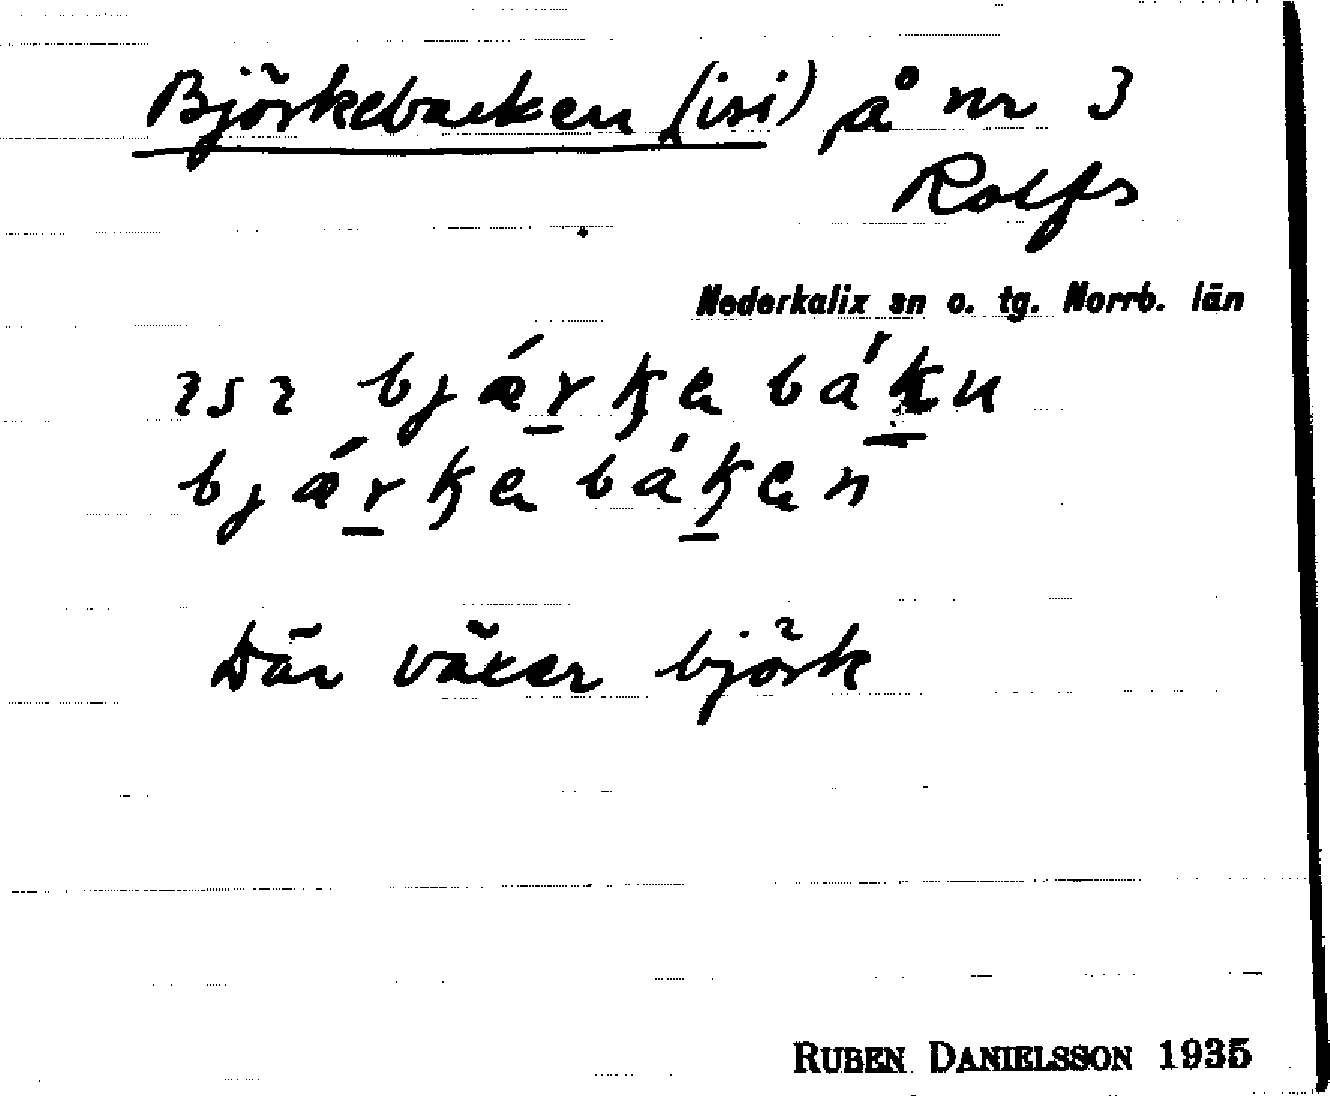 Björkebacken (isi) på nr 3
Rolfs
Nederkalix sn o. tg. Norrb. län
ısı bjǽr̲ka bák̲n
bjǽr̲ka bák̲an
Där växer björk
RUBEN DANIELSSON 1935